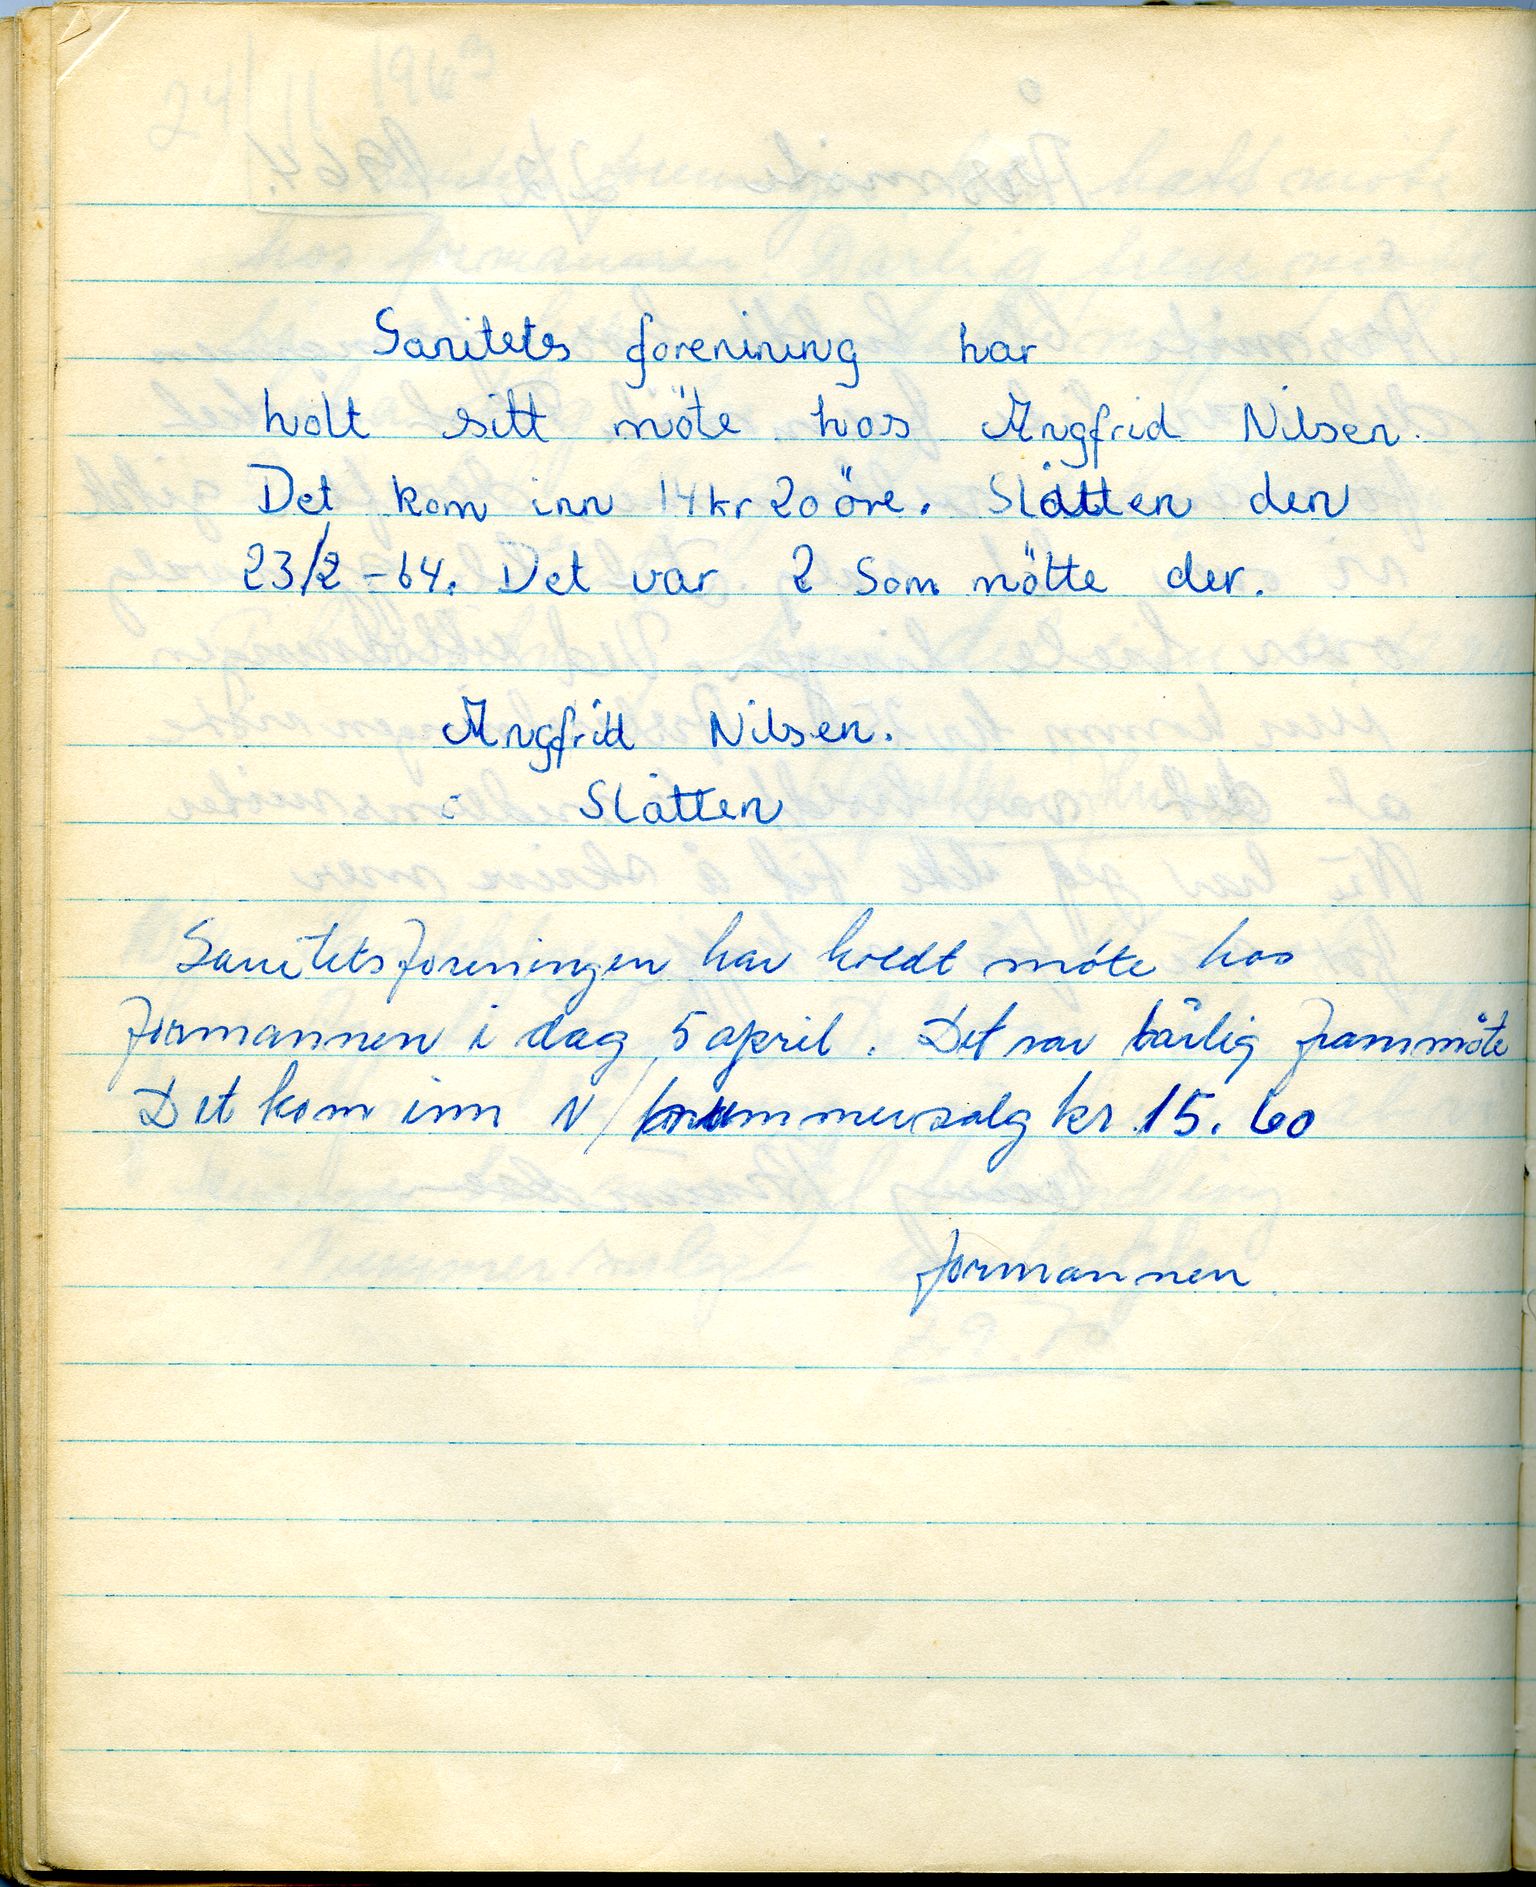 Sanitets forenining har
holt sitt möte hos Angfrid Nilsen.
Det kom inn 14 kr 20 öre. Slåtten den
23/2 - 64. Det var 2 Som mötte der.
Angfrid Nilsen.
Slåtten
Sanitetsforeningen har holdt möte hos
formannen i dag 5 april. Det var dårlig frammöte
Det kom inn v/ nummersalg kr 15.60
formannen.